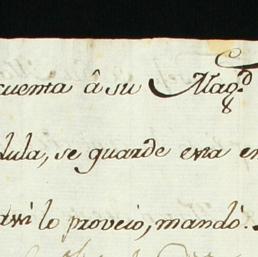 cuenta â su Magᵈ.
dula, se guarde esta en
assi lo proveio, mandò.